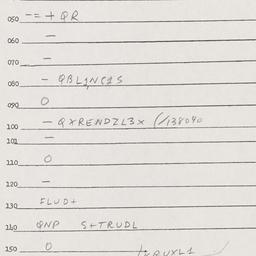 050 -= + QR
060 -
070 -
080 - QBL1NC1S
090 0
100 - QXRENDZL3X (/138040
101 -
110 0
120 -
130 FLUD+
140 QNP S+TRUDL
150 0